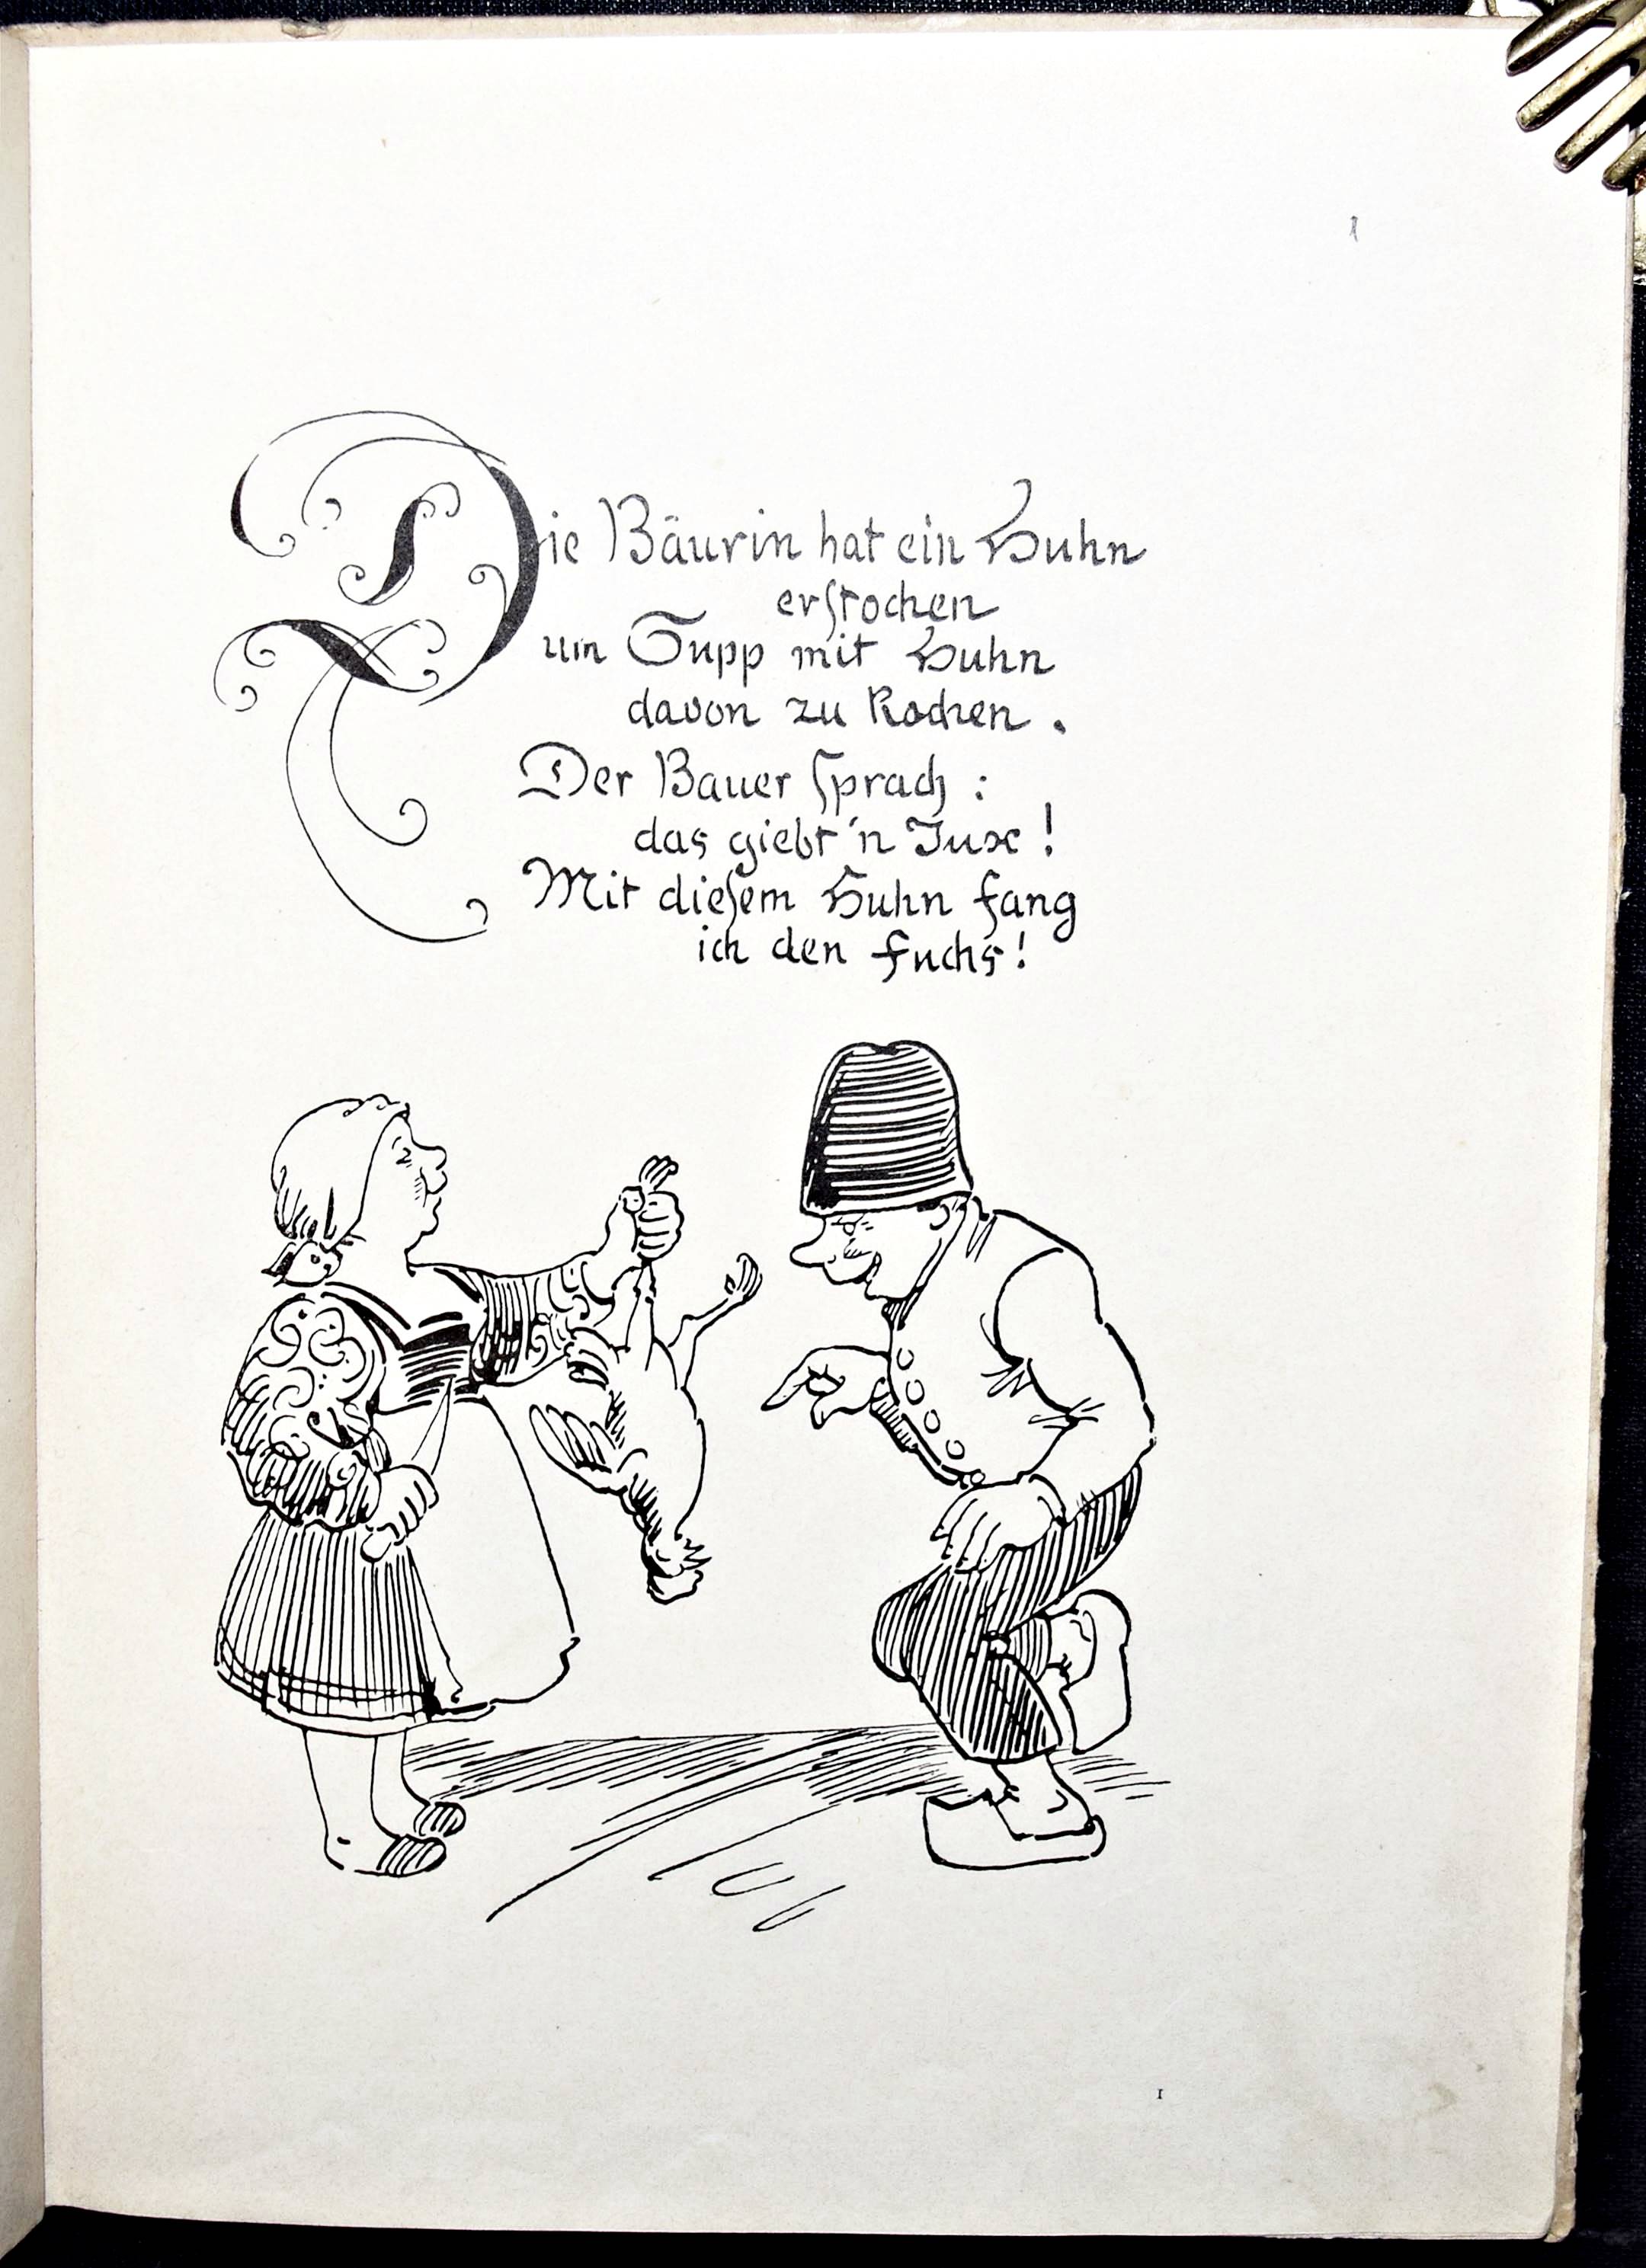 Die Bäurin hat ein Huhn
erſtochen
um Supp mit Huhn
davon zu kochen.
Der Bauer ſprach:
das giebt 'n Jux!
Mit dieſem Huhn fang
ich den Fuchs!
1
1